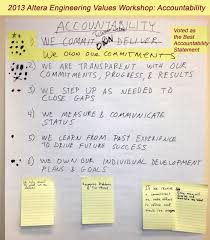 2013 Altera Engineering Values Workshop: Accountability
ACCOUNTABILITY
Voted as
the Best
Accountability
Statement
1) WE COMMIT DELIVER
WE OWN OUR COMMITMENTS
2) WE ARE TRANSPARENT WITH OUR
COMMITMENTS, PROGRESS, & RESULTS
3) WE STEP UP AS NEEDED TO
CLOSE GAPS
4) WE MEASURE & COMMUNICATE
STATUS
5) WE LEARN FROM PAST EXPERIENCE
TO DRIVE FUTURE SUCCESS
6) WE OWN OUR INDIVIDUAL DEVELOPMENT
PLANS & GOALS